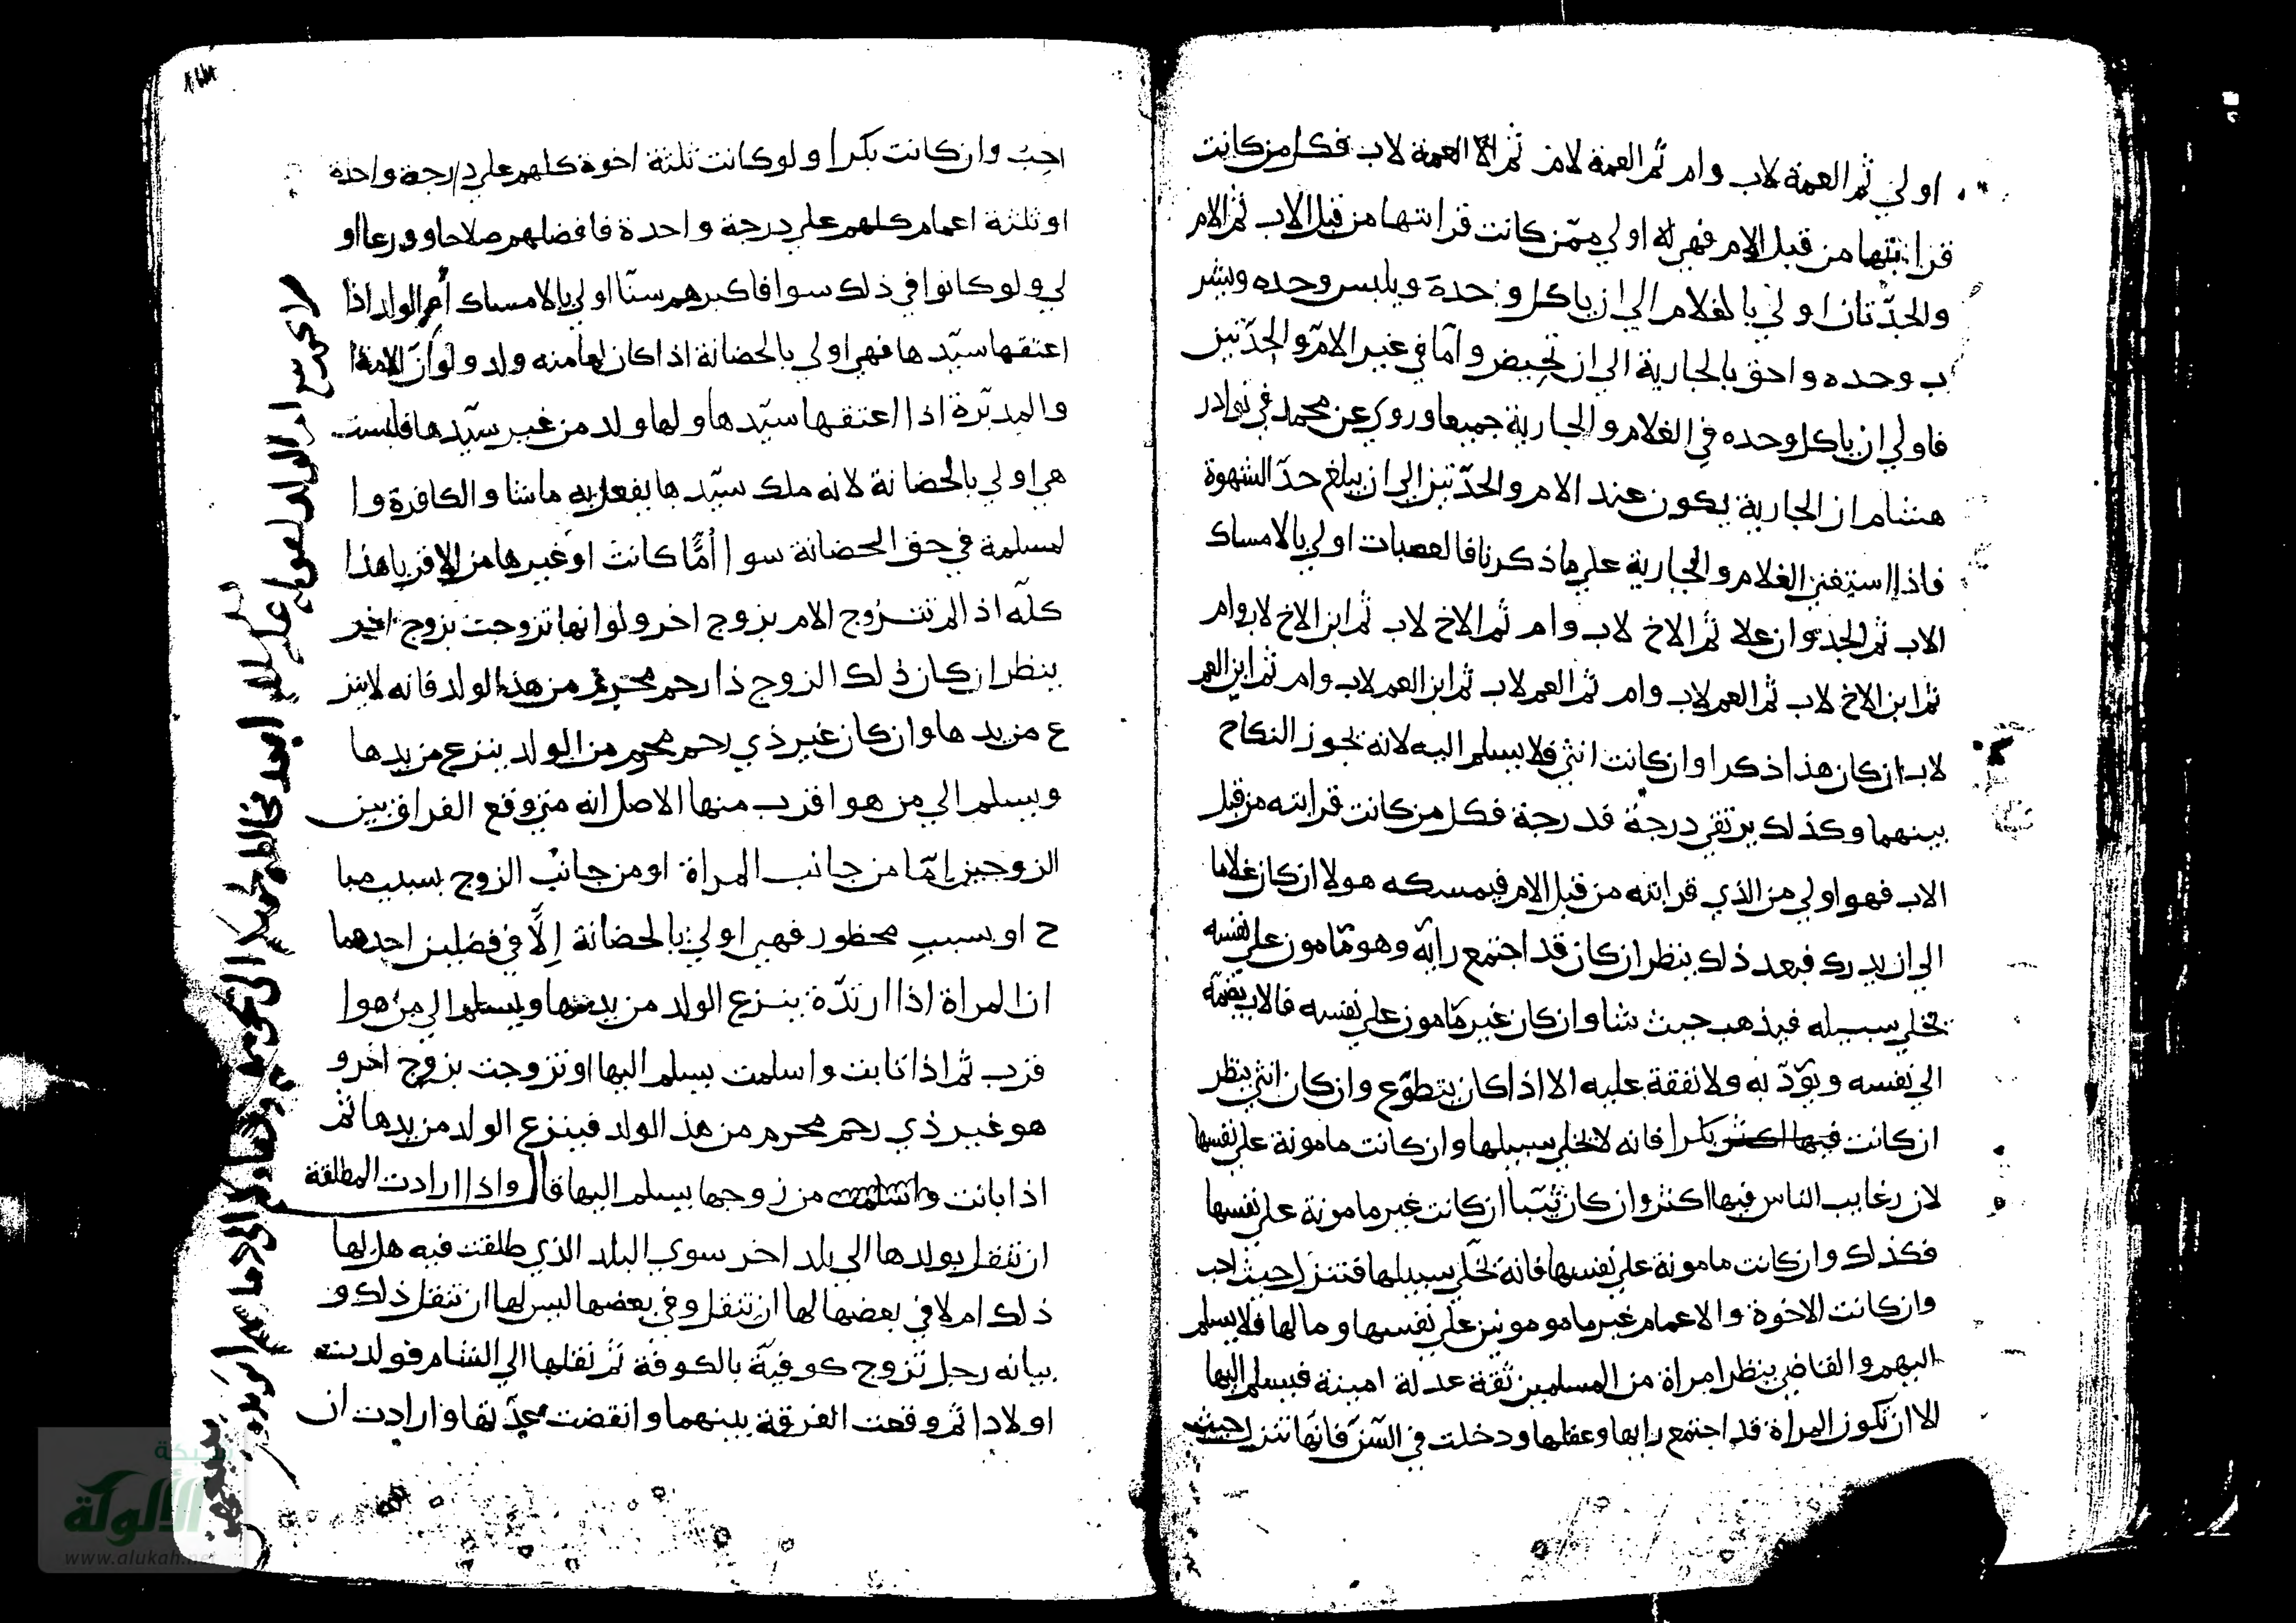 اولي ثم العمة لاب وام ثم العمة لام ثم العمة لاب فكل من كانت
قرابتها من قبل الام فهي اولي ممن كانت قرابتها من قبل الاب ثم الام
والجدتان اولي بالغلام الي ان ياكل وحده ويلبس وحده ويشر
ب وحده واحق بالجارية الي ان تحيض واما في غير الام والجدتين
فاولي ان ياكل وحده في الغلام والجارية جميعا وروي عن محمد في نوادر
هشام ان الجارية يكون عند الام والجدتين الي ان يبلغ حد الشهوة
فاذا استغني الغلام والجارية علي ما ذكرنا فالعصبات اولي بالامساك
الاب ثم الجد وان علا ثم الاخ لاب وام ثم الاخ لاب ثم ابن الاخ لاب وام
ثم ابن الاخ لاب ثم العم لاب وام ثم العم لاب ثم ابن العم لاب وام ثم ابن العم
لاب ان كان هذا ذكرا وان كانت انثي فلا يسلم اليه لانه يجوز النكاح
بينهما وكذلك يرتقي درجة فدرجة فكل من كانت قرابته من قبل
الاب فهو اولي من الذي قرابته من قبل الام فيمسكه هولا ان كان غلاما
الي ان يدرك فبعد ذلك ينظر ان كان قد اجتمع رايه وهو مامون علي نفسه
يخلي سبيله فيذهب حيث شا وان كان غير مامون علي نفسه فالاب يضمه
الي نفسه ويؤدبه ولا نفقة عليه الا اذا كان يتطوع وان كان انثي ينظر
ان كانت بكرا فانه لا يخلي سبيلها وان كانت مامونة علي نفسها
لان رغايب الناس فيها اكثر وان كان ثيبا ان كانت غير مامونة علي نفسها
فكذلك وان كانت مامونة علي نفسها فانه يخلي سبيلها فتنزل حيث احب
وان كانت الاخوة والاعمام غير مامومونين علي نفسها ومالها فلا يسلم
اليهم والقاضي ينظر امراة من المسلمين ثقة عدلة امينة فيسلم اليها
الا ان تكون المراة قد اجتمع رايها وعقلها ودخلت في السن فانها تنزل حيث
احبت وان كانت بكرا ولو كانت ثلثة اخوة كلهم علي درجة واحدة
او ثلثة اعمام كلهم علي درجة واحدة فافضلهم صلاحا وورعا او
لي ولو كانوا في ذلك سوا فاكبرهم سنا اولي بالامساك ام الولد اذا
اعتقها سيدها فهي اولي بالحضانة اذا كان لها منه ولد ولو ان الامة
والمدبرة اذا اعتقها سيدها ولها ولد من غير سيدها فليست
هي اولي بالحضانة لانه ملك سيدها يفعل به ما شا والكافرة وا
لمسلمة في حق الحضانة سوا اما كانت او غيرها من الاقربا هذا
كله اذا لم تتزوج الام بزوج اخر ولو انها تزوجت بزوج اخر
ينظر ان كان ذلك الزوج ذا رحم محرم من هذا الولد فانه لا ينز
ع من يدها وان كان غير ذي رحم محرم من الولد ينزع من يدها
ويسلم الي من هو اقرب منها الاصل انه متي وقع الفراق بين
الزوجين اما من جانب المراة او من جانب الزوج بسبب مبا
ح او بسبب محظور فهي اولي بالحضانة الا في فضلين احدهما
ان المراة اذا ارتدة ينزع الولد من يدها ويسلم الي من هو ا
قرب ثم اذا تابت واسلمت يسلم اليها او تزوجت بزوج اخر و
هو غير ذي رحم محرم من هذ الولد فينزع الولد من يدها ثم
اذا بانت من زوجها يسلم اليها قال واذا ارادت المطلقة
ان تنقل بولدها الي بلد اخر سوي البلد الذي طلقت فيه هل لها
ذلك ام لا في بعضها لها ان تنقل وفي بعضها ليس لها ان تنقل ذلك و
بيانه رجل تزوج كوفية بالكوفة ثم نقلها الي الشام فولدت
اولادا ثم وقعت الفرقة بينهما وانقضت عدتها وارادت ان
شبكة
الألوكة
www.alukah.net